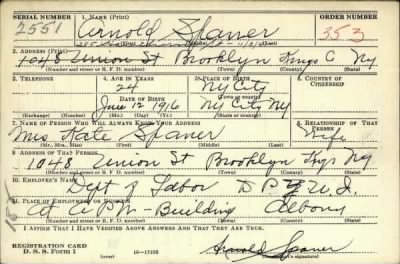 SERIAL NUMBER 1. NAME (Print) ORDER NUMBER
2551 Arnold Spaner 353
2. ADDRESS (Print)
1048 Union St Brooklyn Kings Co Ny
(Number and street or R. F. D. number) (Town) (County) (State)
3. TELEPHONE 4. AGE IN YEARS 5. PLACE OF BIRTH 6. COUNTRY OF CITIZENSHIP
24 Ny City
DATE OF BIRTH (Town or county)
June 12 1916 Ny City Ny
(Exchange) (Number) (Mo.) (Day) (Yr.) (State or country)
7. NAME OF PERSON WHO WILL ALWAYS KNOW YOUR ADDRESS 8. RELATIONSHIP OF THAT PERSON
Mrs Kate Spaner Wife
(Mr., Mrs., Miss) (First) (Middle) (Last)
9. ADDRESS OF THAT PERSON
1048 Union St Brooklyn Kgs Ny
(Number and street or R. F. D. number) (Town) (County) (State)
10. EMPLOYER'S NAME
Dept of Labor D P
11. PLACE OF EMPLOYMENT OR BUSINESS
Building Albany
(Number and street or R. F. D. number) (Town) (County) (State)
I AFFIRM THAT I HAVE VERIFIED ABOVE ANSWERS AND THAT THEY ARE TRUE.
REGISTRATION CARD
D. S. S. Form 1 16—17105 Arnold Spaner